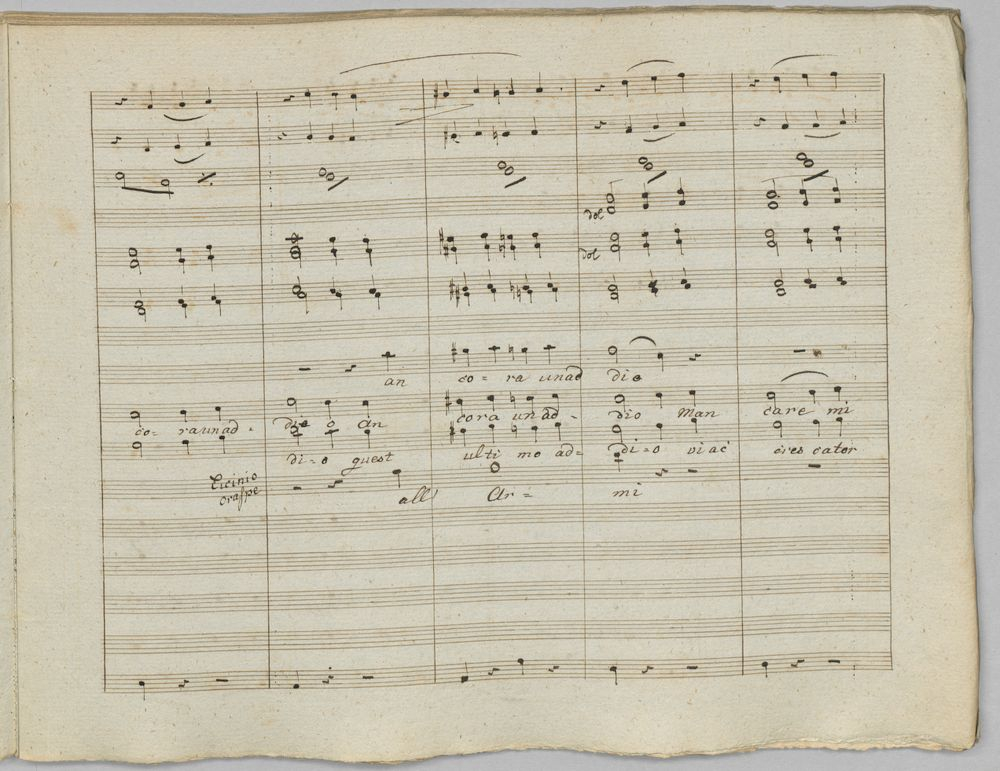 dol
dol
an co = ra un ad dio
co = ra un ad - dio o an cora un ad - dio Man care mi
di = o quest ulti mo ad = di = o vi ac cres cator
Licinio
all' Ar = mi